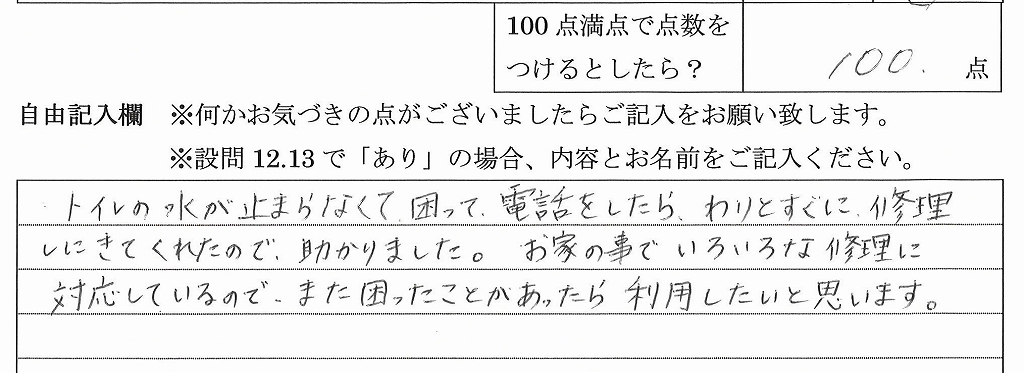 100点満点で点数を
つけるとしたら？
100. 点
自由記入欄 ※何かお気づきの点がございましたらご記入をお願い致します。
※設問12.13で「あり」の場合、内容とお名前をご記入ください。
トイレの水が止まらなくて、困って、電話をしたら、わりとすぐに、修理
しにきてくれたので、助かりました。 お家の事でいろいろな修理に
対応しているので、また困ったことがあったら利用したいと思います。